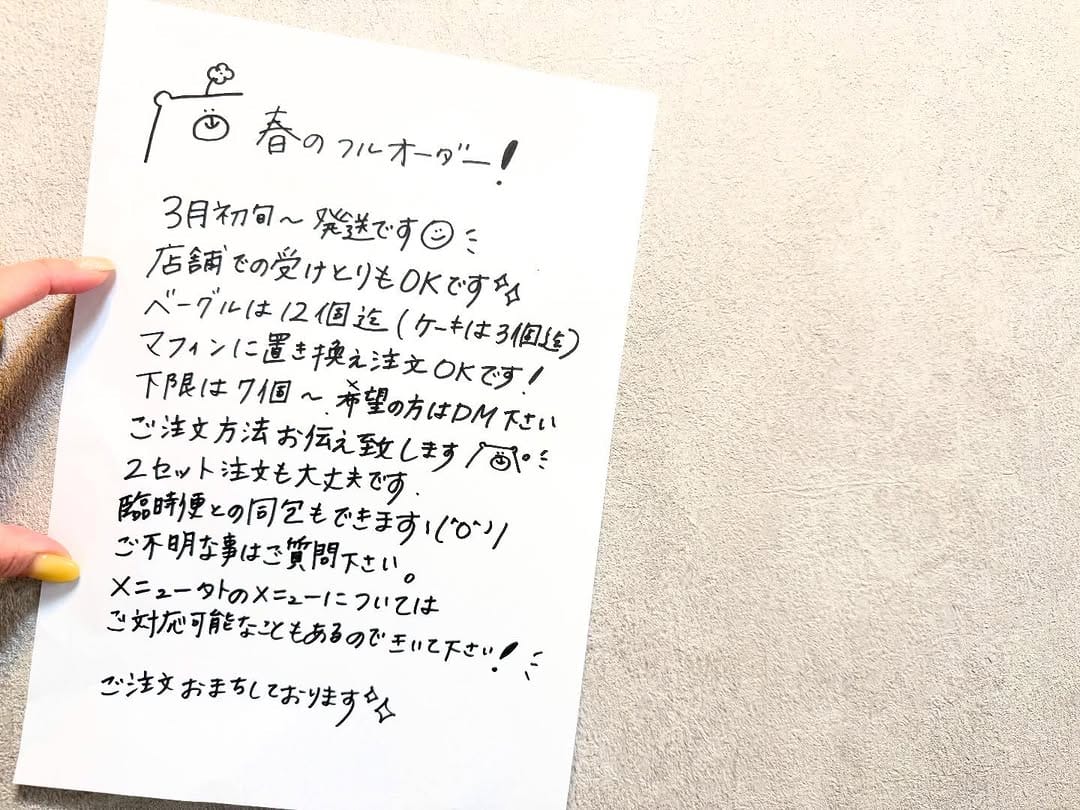 春のフルオーダー!
3月初旬〜発送です
店舗での受けとりもOKです
ベーグルは12個迄(ケーキは3個迄)
マフィンに置き換え注文OKです!
下限は7個〜.希望の方はDM下さい
ご注文方法お伝え致します
2セット注文も大丈夫です.
臨時便との同包もできますヽ(^o^)ノ
ご不明な事はご質問下さい。
メニュー外のメニューについては
ご対応可能なこともあるのできいて下さい!
ご注文おまちしております